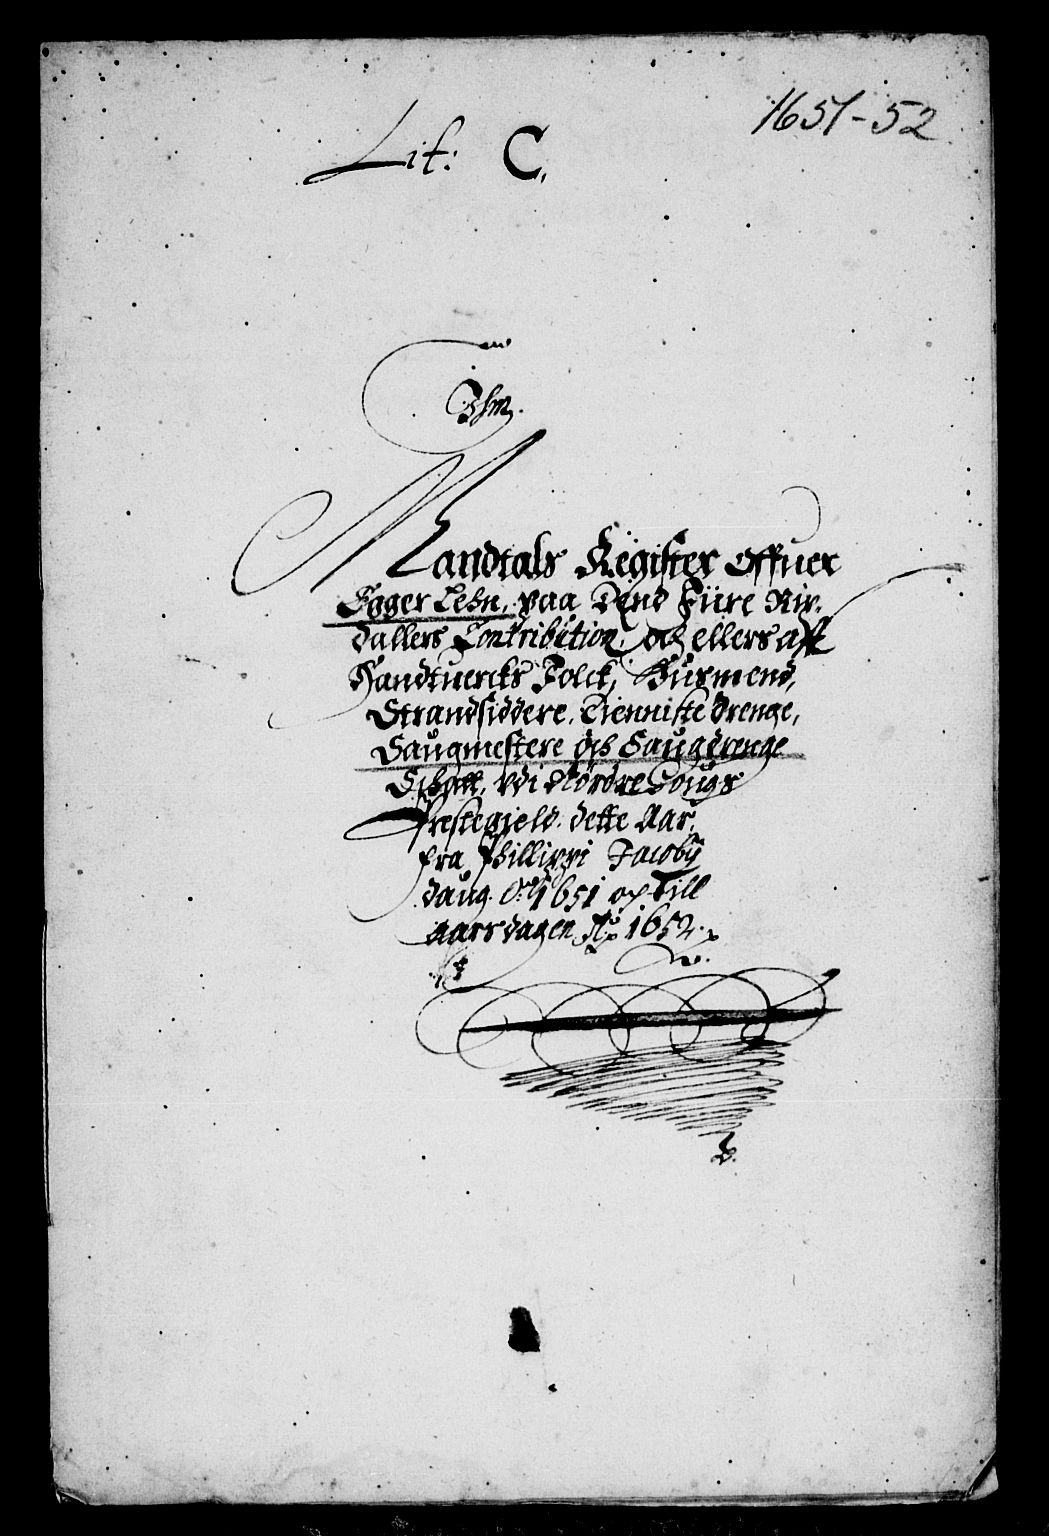 1651-52
Lit: C,
Mandtals Register offuer
Egger Lehn, paa Dend Fiire Rix-
dallers Contribution, och ellers aff
Handtuercks Folck, Husmend,
Strandsiddere, Tienniste drenge,
Saugmestere och Saugdrenge
Schatt, vdi Nordre Sougs
Prestegield. dette Aar,
fra Phillippi Jacobij
daug A:o 1651 op Till
Aarsdagen A:o 1652.